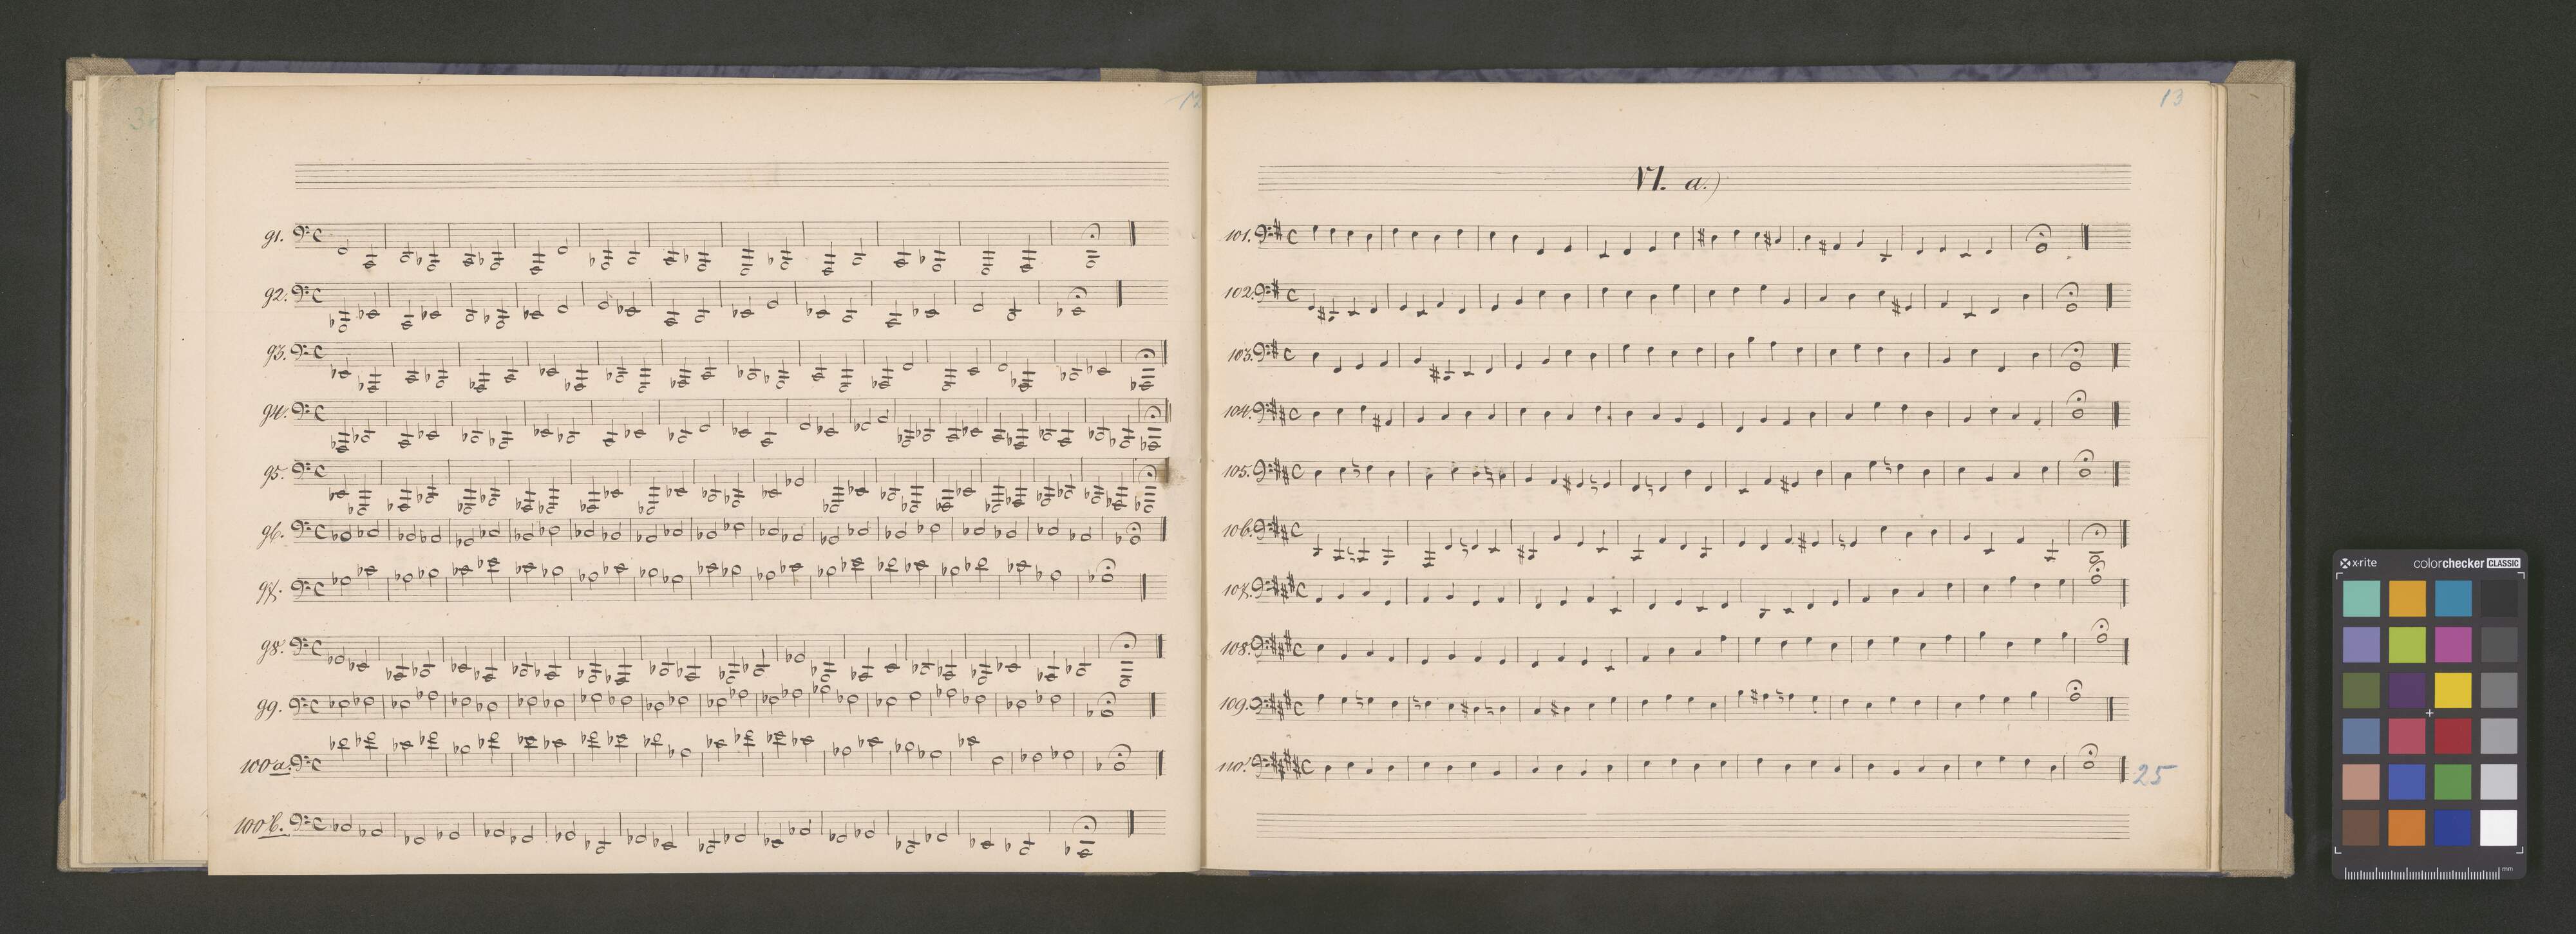 12
91.
92.
93.
94.
95.
96.
97.
98.
99.
100a.
100b.
13
VI. a.)
101.
102.
103.
104.
105.
106.
107.
108.
109.
110.
25
x-rite
colorchecker CLASSIC
mm